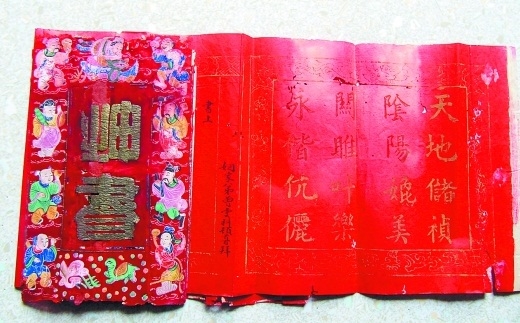 天地儲禎
陰陽媲美
關雎叶樂
永偕伉儷
姻書